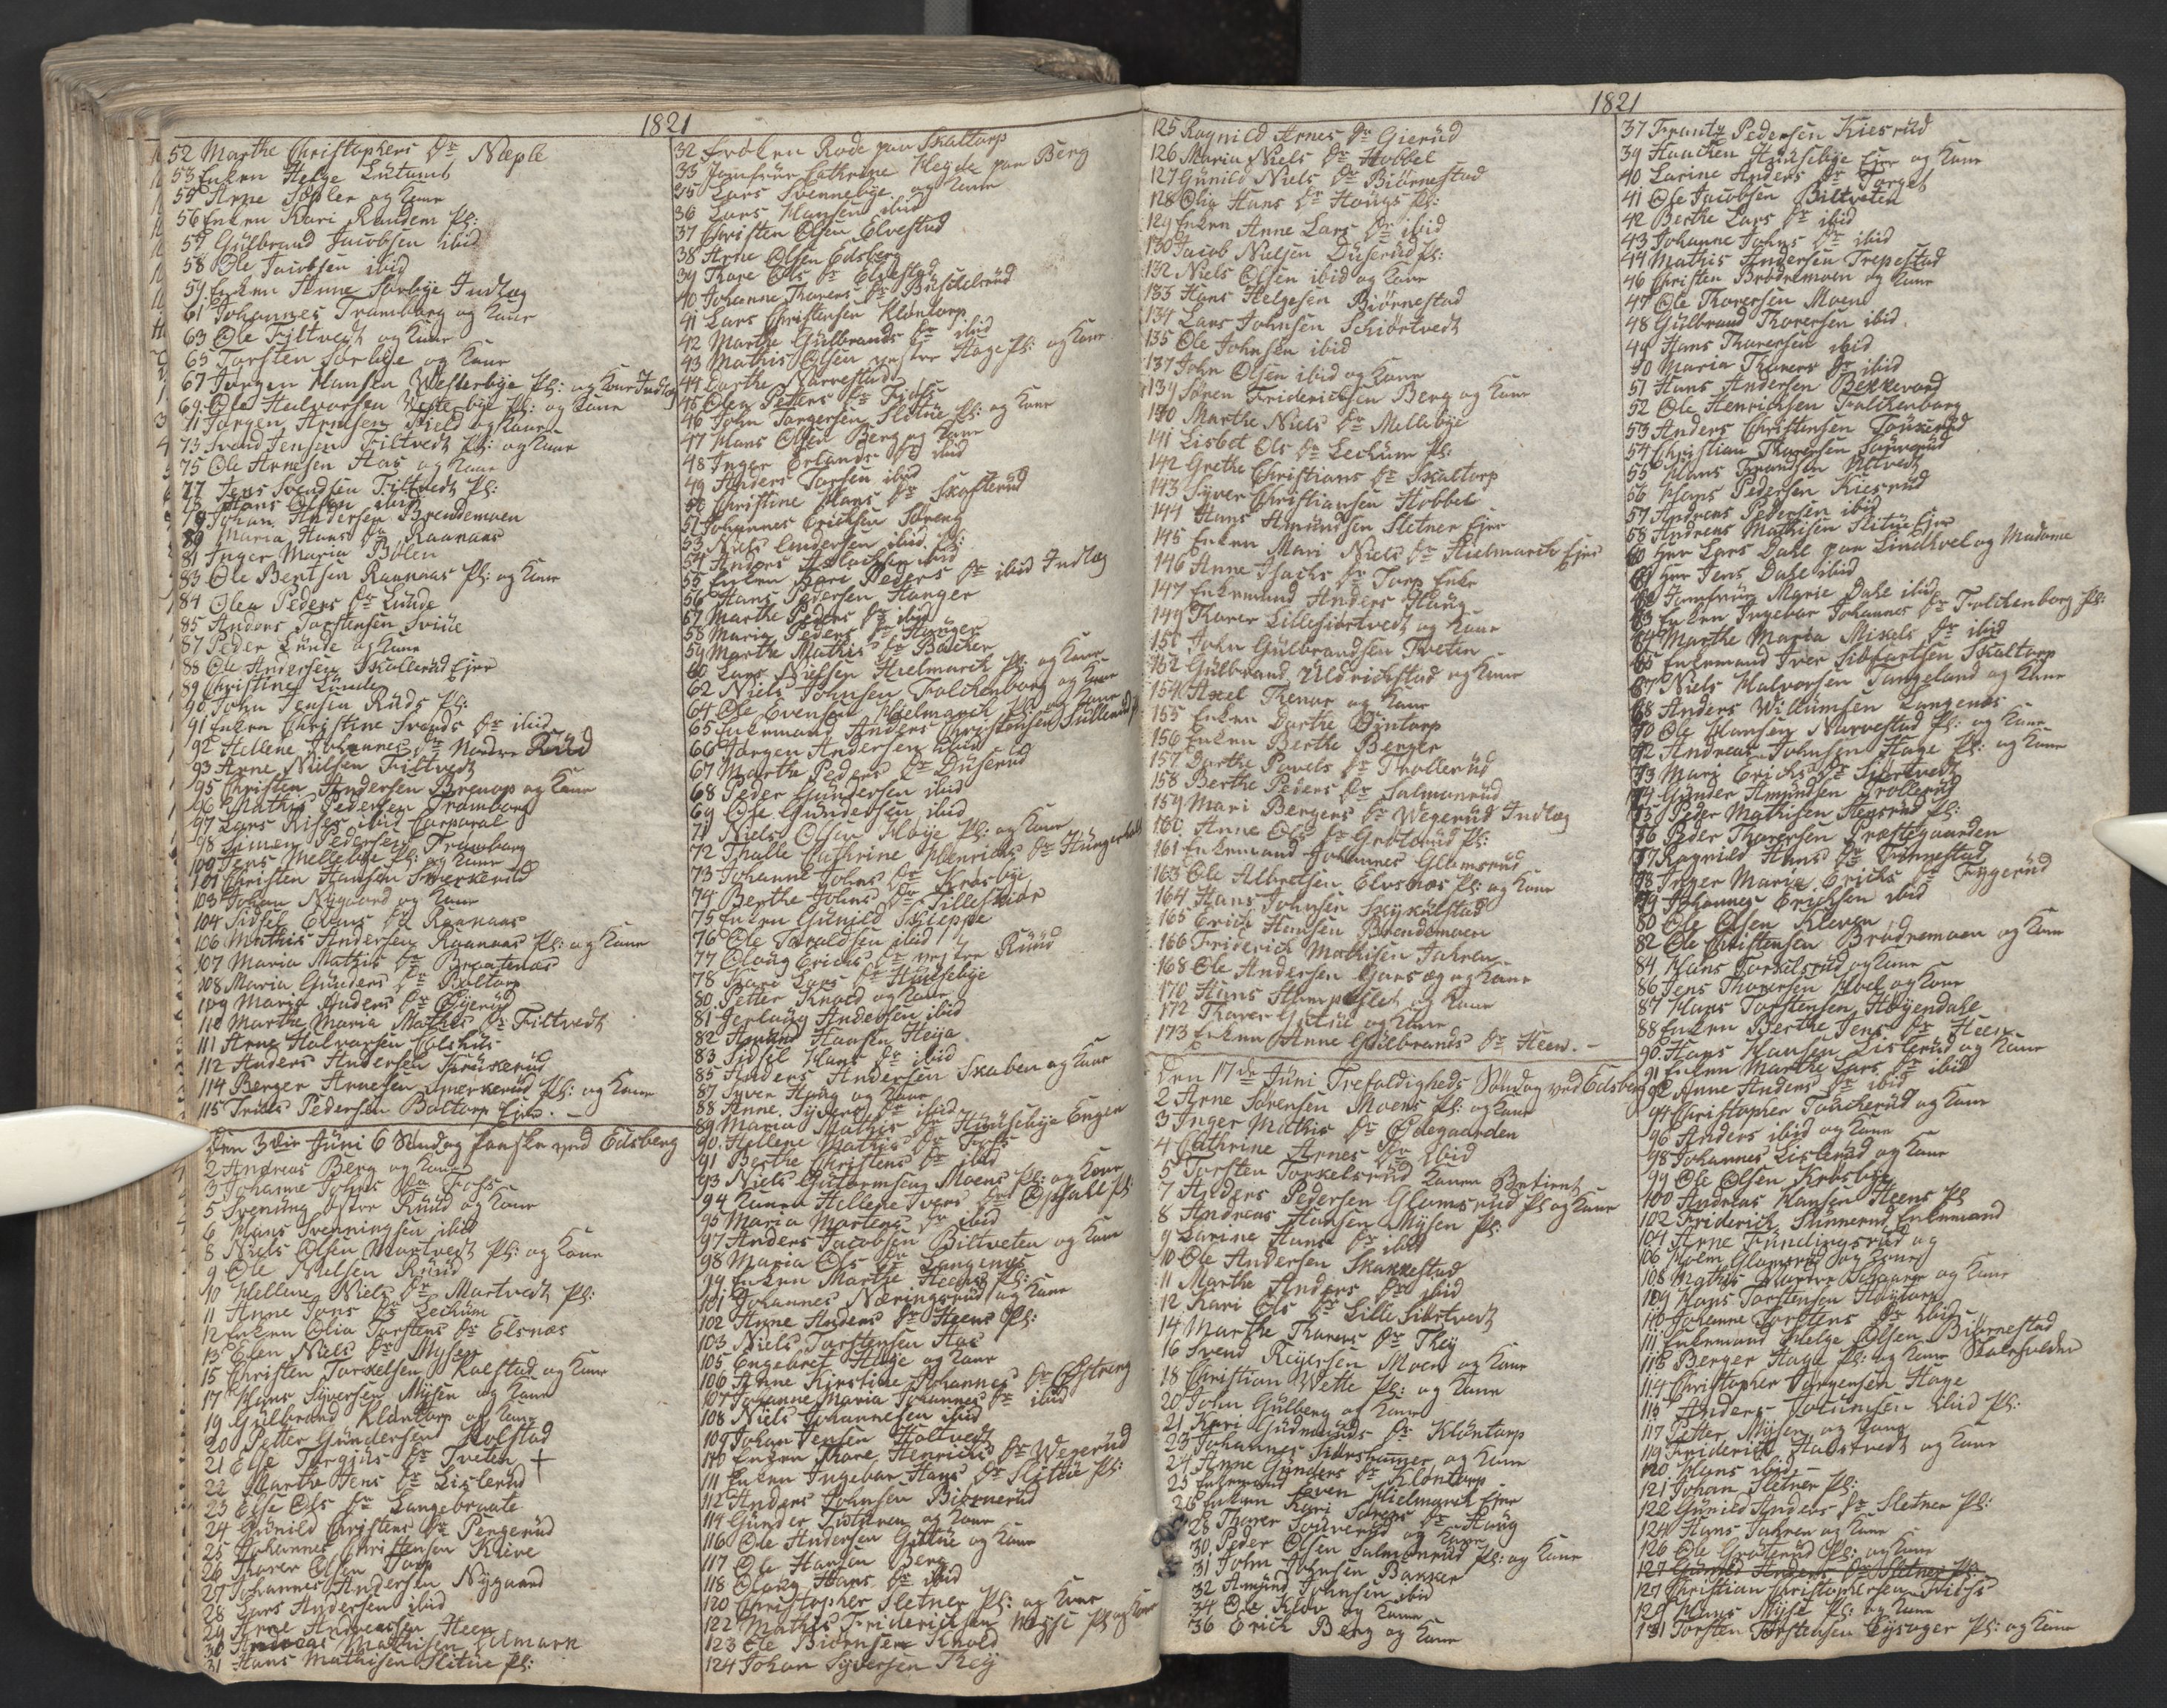 1821
52 Marthe Christophers Dr Næple
53 Enken Helge Lutumb
55 Arne Topler og Kone
56 Enken Kari Randem Pl:
57 Gülbrand Jacobsen ibid
58 Ole Jacobsen ibid
59 Enken Anne Sorbye Indlæg
61 Johannes Tramborg og Kone
63 Ole Filtvedt og Kone
65 Torsten Sorbye og Kone
67 Jørgen Hansen Westerbye Pl: og Kone Indlæg
69 Ole Halvorsen Westerbye Pl: og Kone
71 Jørgen Arnesen Field og Kone
73 Svend Jensen Filtvedt Pl: og Kone
75 Ole Arnesen Aas og Kone
77 Jens Svendsen Filtvedt Pl:
78 Hans Olsen ibid
79 Johan Andersen Brendemoen
80 Maria Hans Dr Raanaas
81 Inger Maria Bølen
83 Ole Bentsen Raanaas Pl: og Kone
84 Olea Peders Dr Lunde
85 Anders Torstensen Sviüe
87 Peder Lünde og Kone
88 Ole Andersen Skallerud Ejer
89 Christine Lünde
90 John Jensen Rüds Pl:
91 Enken Christine Svends Dr ibid
92 Hellene Johannes Dr Nordre Rüd
93 Arne Nielsen Filtvedt
95 Christen Andersen Brenop og Kone
96 Mathis Pedersen Tramborg
97 Lars Riser ibid Corporal
98 Simen Pedersen Tramborg
100 Jens Mellebye Pl: og Kone
101 Christen Hansen Smerkerud
103 Johan Nygaard og Kone
104 Sidsel Evens Dr Raanaas
106 Mathis Andersen Raanaas Pl: og Kone
107 Maria Mathis Dr Braatenas
108 Maria Günders Dr Boltorp
109 Maria Anders Dr Gjerud
110 Marthe Maria Mathis Dr Filtvedt
111 Arne Halvorsen
112 Anders Andersen
114 Berger Arnesen Smerkerud Pl: og Kone
115 Truls Pedersen Boltorp Ejer.
Den 3die Jüni 6 Søndag Paaske ved Edsberg
2 Andreas Berg og Kone
3 Johanne Johns Dr Foss
5 Svenüng østre Rüüd og Kone
6 Hans Svenningsen ibid
8 Niels Olsen Martvedt Pl: og Kone
9 Ole Nielsen Rüüd
10 Hellene Niels Dr Martvedt Pl:
11 Anne Jons Dr Lechüm
12 Enken Olia Torstens Dr Elsnæs
13 Elen Niels Dr Mysen
15 Christen Torkelsen Kolstad og Kone
17 Hans Syversen Mysen og Kone
19 Gülbrand Kløntorp og Kone
20 Petter Gündersen Kolstad
21 Else Torgius Dr Tveten +
22 Marthe Jens Dr Lislerud
23 Else Ols Dr Langebraate
24 Günild Christens Dr Pengerüd
25 Johannes Christensen Kleve
26 Thorer Olsen Torp
27 Johannes Andersen Nygaard
28 Lars Andersen ibid
29 Arne Andreassen Heen
30 Andreas Mathisen Eidmark
31 Hans Mathisen Slitüe Pl:
32 Frøken Rode paa Skaltorp
33 Jomfrue Cathrine Heyde paa Berg
35 Lars Svennebye og Kone
36 Lars Hansen ibid
37 Christen Olsen Elvestad
38 Arne Olsen Edsberg
39 Thore Ols Dr Elvestad
40 Johanne Thorers Dr Buschelrüd
41 Lars Christensen Kløntorp
42 Marthe Gülbrands Dr ibid
43 Mathis Olsen vestre Hage Pl: og Kone
44 Dorthe Narvestad
45 Olea Petters Dr Fiøss
46 John Jørgensen Slitüe Pl: og Kone
47 Hans Olsen Berg og Kone
48 Inger Erlands Dr ibid
49 Anders Torsen ibid
50 Christine Hans Dr Skofterüd
51 Johannes Ericksen Soreng
53 Niels Andersen ibid Pl:
54 Anders Isachsen ibid
55 Enken Kari Peders Dr ibid Indlæg
56 Hans Pedersen Hunger
57 Marthe Peders Dr ibid
58 Maria Peders Dr Haüger
59 Marthe Mathis Dr Bakker
60 Lars Nielsen Hielmarck Pl: og Kone
62 Niels Johnsen Falchenborg og Kone
64 Ole Evensen Hielmarck Pl: og Kone
65 Enkemand Anders Christensen Süllerud Pl
66 Jørgen Andersen ibid
67 Marthe Peders Dr Düserud
68 Peder Gündersen ibid
69 Ole Gündersen ibid
71 Niels Olsen Højbye Pl: og Kone
72 Thalle Cathrine Henrichs Dr Hüngerholt
73 Johanne Johns Dr Krosbye
74 Berthe Johns Dr Tillefskiør
75 Enken Günild Skieppe
76 Ole Taraldsen ibid
77 Olaüg Erichs Dr vestre Rüüd
78 Kari Lars Dr Hüüsebye
80 Petter Knold og Kone
81 Gerlaug Andersen ibid
82 Amünd Haansen Heija
83 Sidsel Hans Dr ibid
85 Anders Andersen Skaben og Kone
87 Syver Haüg og Kone
88 Anne Syvers Dr ibid
89 Maria Mathis Dr Hüüsebye Engen
90 Hellene Mathis Dr Foss
91 Berthe Christens Dr ibid
93 Niels Gütormsen Moens Pl: og Kone
94 Konen Hellene Ivers Dr Opsahl Pl:
95 Maria Mortens Dr ibid
97 Anders Jacobsen Biltveten og Kone
98 Maria Ols Dr Langenæs
99 Enken Marthe Heens Pl:
101 Johannes Næringsrüd og Kone
102 Anne Anders Dr Heens Pl:
103 Niels Torstensen Aas
105 Engebret Høye og Kone
106 Anne Kirstine Johannes Dr Østreng
107 Johanne Maria Johannes Dr ibid
108 Niels Johannesen ibid
109 Johan Jensen Holtvedt
110 Enken Thore Henrichs Dr Wegerüd
111 Enken Ingebor Hans Dr Slitüe Pl:
112 Anders Johnsen Biørnerüd
114 Günder Tütüren og Kone
116 Ole Andersen Gütüe og Kone
117 Ole Hansen Berg
118 Olaug Hans Dr ibid
120 Christopher Sletner Pl: og Kone
122 Mathis Friderichsen Mysse Pl og Kone
123 Ole Biørnsen Knold
124 Johan Syversen Theÿ
1821
125 Ragnild Arnes Dr Gierüd
126 Maria Niels Dr Hobbel
127 Günild Niels Dr Biørnestad
128 Olia Hans Dr Haugs Pl:
129 Enken Anne Lars Dr ibid
130 Jacob Nielsen Düserüd Pl:
132 Niels Olsen ibid og Kone
133 Hans Helgesen Biørnestad
134 Lars Johnsen Schiørtvedt
135 Ole Johnsen ibid
137 John Olsen ibid og Kone
139 Søren Friderichsen Berg og Kone
140 Marthe Niels Dr Mellebye
141 Lisbet Ols Dr Lechüm Pl:
142 Grethe Christians Dr Skaltorp
143 Syver Christiansen Hobbel
144 Hans Amündsen Sletner Ejer
145 Enken Mari Niels Dr Hielmarck Ejer
146 Anne Isachs Dr Torp Enke
147 Enkemand Anders Haug
149 Thorer Lillesiortvedt og Kone
151 John Gülbrandsen Tveten
152 Gülbrand Uldrichstad og Kone
154 Axel Thenor og Kone
155 Enken Dorthe Dÿntorp
156 Enken Berthe Berger
157 Dorthe Povels Dr Trollerüd
158 Berthe Peders Dr Salmonrüd
159 Mari Bergers Dr Wegerüd Indlæg
160 Anne Ols Dr Grøterüd Pl:
161 Enkemand Johannes Glomsrüd
163 Ole Albretsen Elvsnæs Pl: og Kone
164 Hans Johnsen Skykülstad
165 Erich Hansen Brendemoen
166 Friderich Mathisen Jahren
168 Ole Andersen Garseg og Kone
170 Hans Hampallet og Kone
172 Thorer Gütüe og Kone
173 Enken Anne Gülbrands Dr Heen.
Den 17de Jüni Trefoldigheds Søndag ved Edsberg
2 Arne Sørensen Moens Pl: og Kone
3 Inger Mathis Dr Ødegaarden
4 Cathrine Arnes Dr ibid
5 Torsten Torkelsrüd Konen Betient
7 Anders Pedersen Glomsrüd Pl og Kone
8 Andreas Hansen Mÿsen Pl:
9 Larine Hans Dr ibid
10 Ole Andersen Skannestad
11 Marthe Anders Dr ibid
12 Kari Ols Dr Lille Siortvedt
14 Marthe Thorers Dr Theÿ
16 Svend Reÿersen Moen og Kone
18 Christian Wette Pl: og Kone
20 John Gülberg og Kone
21 Kari Güdmunds Dr Kløntorp
23 Johannes Siørshamer og Kone
24 Anne Günders Dr Klontorp
25 Enkemand Even Hielmarck Ejer
26 Enken Kari Sørens Dr Haüg
28 Thorer Toüverüd og Kone
30 Peder Olsen Salmonrüd Pl: og Kone
31 John Johnsen Bakker
32 Amünd Johnsen ibid
34 Ole Klev og Kone
36 Erich Berg og Kone
37 Frantz Pedersen Kiesrüd
39 Haachen Hüüsebye Ejer og Kone
40 Larine Anders Dr Torget
41 Ole Jacobsen Biltveten
42 Berthe Lars Dr ibid
43 Johanne Johns Dr ibid
44 Mathis Andersen Trepestad
46 Christen Brødremoen og Kone
47 Ole Thorersen Moen
48 Gülbrand Thorersen ibid
49 Hans Thorersen ibid
50 Maria Thorers Dr ibid
51 Hans Andersen Bekkevard
52 Ole Henrichsen Falchenborg
53 Anders Christensen
54 Christian Thorersen
55 Hans Frandsen
56 Hans Pedersen Kiesrüd
57 Andreas Pedersen ibid
58 Andreas Mathisen Slitüe Ejer
60 Herr Lars Dahl paa Lindhvel og Madame
61 Herr Jens Dahl ibid
62 Jomfrüe Marie Dahl ibid
63 Enken Ingebor Johannes Dr Falchenborg Pl:
64 Marthe Maria Mikels Dr ibid
65 Enkemand Iver Sibfartsen Skaltorp
67 Niels Halvorsen Tangeland og Kone
68 Anders Willümsen Langenæs
70 Ole Hansen Narvestad Pl: og Kone
72 Andreas Johnsen Hage Pl: og Kone
73 Mari Erichs Dr Siørtvedt
74 Günder Amündsen Trollerüd
75 Peder Mathisen Heusrüd Pl:
76 Peder Thorersen Præstegaarden
77 Ragnild Hans Dr Finnestad
78 Inger Maria Erichs Dr Tÿgerüd
79 Johannes Erichsen ibid
80 Ole Olsen Kleven
82 Ole Christensen Brødremoen og Kone
84 Hans Torkelsrüd og Kone
86 Jens Thorersen Hoel og Kone
87 Hans Torstensen Høÿendahl
88 Enken Berthe Jens Dr Heen
90 Hans Hansen Lislerüd og Kone
91 Enken Marthe Lars Dr ibid
92 Anne Anders Dr ibid
94 Christopher Taücherüd og Kone
96 Anders ibid og Kone
98 Johannes Lislerüd og Kone
99 Ole Olsen Krosbye
100 Andreas Hansen Heens Pl
102 Friderich Sünnerud Enkemand
104 Arne Fündingsrüd og
106 Holm Glomsrüd og Kone
108 Mathis Nordre Schaarer og Kone
109 Hans Torstensen Høÿtorp
110 Johanne Torstens Dr ibid
111 Enkemand Helge Olsen Biørnestad
113 Berger Hage Pl: og Kone
114 Christopher Jørgensen Hage
115 Anders ibid Pl:
117 Petter Mÿsen og Kone
119 Friderich Haostvedt og Kone
120 Hans ibid
121 Johan Sletner Pl:
122 Günild Anders Dr Sletner Pl:
124 Hans Jahren og Kone
126 Ole Grøterüd Pl: og Kone
127 Günild Anders Dr Sletner Pl:
127 Christian Christophersen Friess
129 Hans Mÿse Pl: og Kone
131 Torsten Torstensen Eÿsager Pl: og Kone